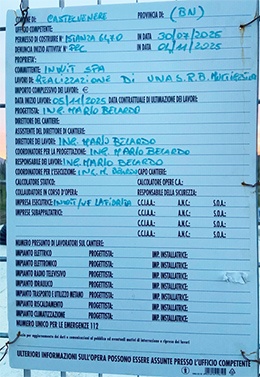 COMUNE DI: CASTELVENERE PROVINCIA DI: (BN)
UFFICIO COMPETENTE:
PERMESSO DI COSTRUIRE N° ISTANZA 6470 IN DATA 30/07/2025
DENUNCIA INIZIO ATTIVITÀ N° PEC IN DATA 04/11/2025
PROPRIETÀ:
COMMITTENTE: INWIT SPA
LAVORI DI: REALIZZAZIONE DI UNA S.R.B. MULTIGESTORE
IMPORTO COMPLESSIVO DEI LAVORI: €
DATA INIZIO LAVORI: 05/11/2025 DATA CONTRATTUALE DI ULTIMAZIONE DEI LAVORI:
PROGETTISTA: ING. MARIO BELARDO
DIRETTORE DEL CANTIERE:
ASSISTENTE DEL DIRETTORE DI CANTIERE:
DIRETTORE DEI LAVORI: ING. MARIO BELARDO
COORDINATORE PER LA PROGETTAZIONE: ING. MARIO BELARDO
RESPONSABILE DEI LAVORI: ING. MARIO BELARDO
COORDINATORE PER L'ESECUZIONE: ING. M. BELARDO CAPO CANTIERE:
CALCOLATORE STATICO: CALCOLATORE OPERE C.A.:
COLLAUDATORE IN CORSO D'OPERA: RESPONSABILE DELLA SICUREZZA:
IMPRESA ESECUTRICE: C.C.I.A.A.: A.N.C.: S.O.A.:
IMPRESA SUBAPPALTATRICE: C.C.I.A.A.: A.N.C.: S.O.A.:
C.C.I.A.A.: A.N.C.: S.O.A.:
C.C.I.A.A.: A.N.C.: S.O.A.:
NUMERO PRESUNTO DI LAVORATORI SUL CANTIERE:
IMPIANTO ELETTRICO PROGETTISTA: IMP. INSTALLATRICE:
IMPIANTO ELETTRONICO PROGETTISTA: IMP. INSTALLATRICE:
IMPIANTO RADIO TELEVISIVO PROGETTISTA: IMP. INSTALLATRICE:
IMPIANTO IDRAULICO PROGETTISTA: IMP. INSTALLATRICE:
IMPIANTO TRASPORTO E UTILIZZO METANO PROGETTISTA: IMP. INSTALLATRICE:
IMPIANTO RISCALDAMENTO PROGETTISTA: IMP. INSTALLATRICE:
IMPIANTO CLIMATIZZAZIONE PROGETTISTA: IMP. INSTALLATRICE:
NUMERO UNICO PER LE EMERGENZE 112
ULTERIORI INFORMAZIONI SULL'OPERA POSSONO ESSERE ASSUNTE PRESSO L'UFFICIO COMPETENTE